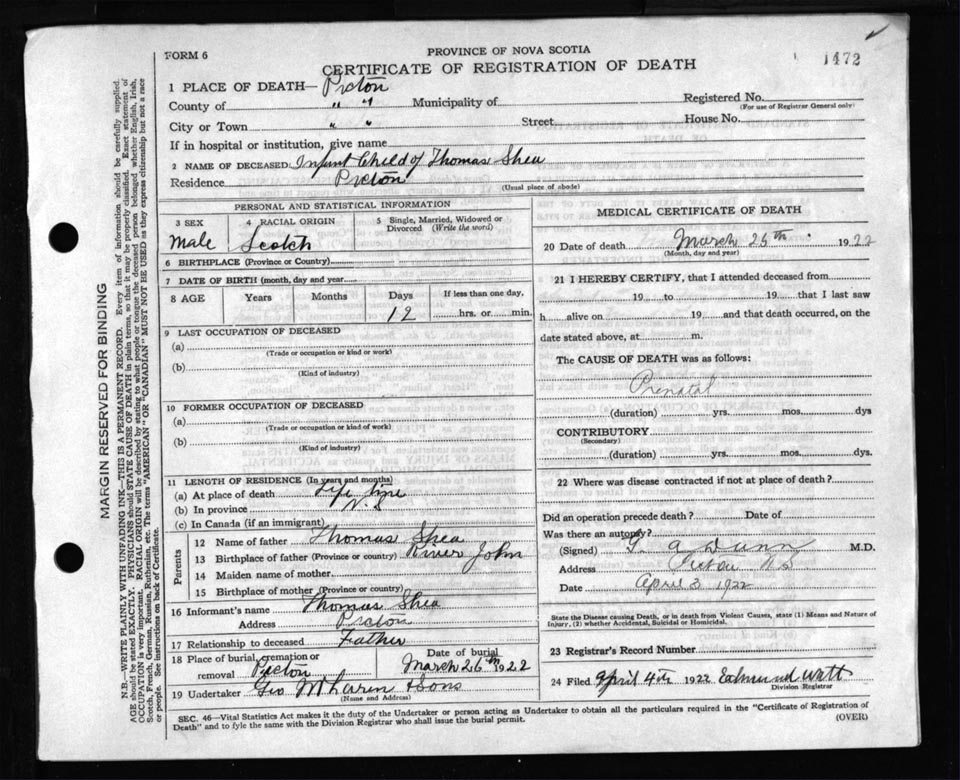 1472
FORM 6
PROVINCE OF NOVA SCOTIA
CERTIFICATE OF REGISTRATION OF DEATH
1 PLACE OF DEATH— Pictou
County of " " Municipality of Registered No.
(For use of Registrar General only)
City or Town " " Street House No.
If in hospital or institution, give name
2 NAME OF DECEASED: Infant Child of Thomas Shea
Residence Pictou
(Usual place of abode)
PERSONAL AND STATISTICAL INFORMATION
3 SEX 4 RACIAL ORIGIN 5 Single, Married, Widowed or Divorced (Write the word)
Male Scotch
6 BIRTHPLACE (Province or Country)
7 DATE OF BIRTH (month, day and year
8 AGE Years Months Days If less than one day,
12 hrs. or min.
9 LAST OCCUPATION OF DECEASED
(a)
(Trade or occupation or kind or work)
(b)
(Kind of industry)
10 FORMER OCCUPATION OF DECEASED
(a)
(Trade or occupation or kind of work)
(b)
(Kind of industry)
11 LENGTH OF RESIDENCE (In years and months)
(a) At place of death Life time
(b) In province N.S
(c) In Canada (if an immigrant)
Parents
12 Name of father Thomas Shea
13 Birthplace of father (Province or country) River John
14 Maiden name of mother
15 Birthplace of mother (Province or country)
16 Informant's name Thomas Shea
Address Pictou
17 Relationship to deceased Father
18 Place of burial, cremation or removal Pictou
Date of burial
March 26th 1922
19 Undertaker Geo McLaren & Sons
(Name and Address)
MEDICAL CERTIFICATE OF DEATH
20 Date of death March 25th 1922
(Month, day and year)
21 I HEREBY CERTIFY, that I attended deceased from
19 to 19 that I last saw
h alive on 19 and that death occurred, on the
date stated above, at m.
The CAUSE OF DEATH was as follows:
Prenatal
(duration) yrs. mos. dys
CONTRIBUTORY
(Secondary)
(duration) yrs. mos. dys.
22 Where was disease contracted if not at place of death?
Did an operation precede death? Date of
Was there an autopsy?
(Signed) G. A. Dunn M.D.
Address Pictou N S
Date April 3 1922
State the Disease causing Death, or in death from Violent Causes, state (1) Means and Nature of
Injury, (2) whether Accidental, Suicidal or Homicidal.
23 Registrar's Record Number
24 Filed April 4th 1922 Edmund Watt
Division Registrar
SEC. 46—Vital Statistics Act makes it the duty of the Undertaker or person acting as Undertaker to obtain all the particulars required in the "Certificate of Registration of
Death" and to fyle the same with the Division Registrar who shall issue the burial permit.
(OVER)
MARGIN RESERVED FOR BINDING
N.B.—WRITE PLAINLY WITH UNFADING INK—THIS IS A PERMANENT RECORD. Every item of information should be carefully supplied.
AGE should be stated EXACTLY. PHYSICIANS should STATE CAUSE OF DEATH in plain terms, so that it may be properly classified. Exact statement of
OCCUPATION is very important. RACIAL ORIGIN will be described by stating to what people or tongue the deceased person belonged whether English, Irish,
Scotch, French, German, Russian, Ruthenian, etc. The terms "AMERICAN" OR "CANADIAN" MUST NOT BE USED as they express citizenship but not a race
or people. See instructions on back of Certificate.